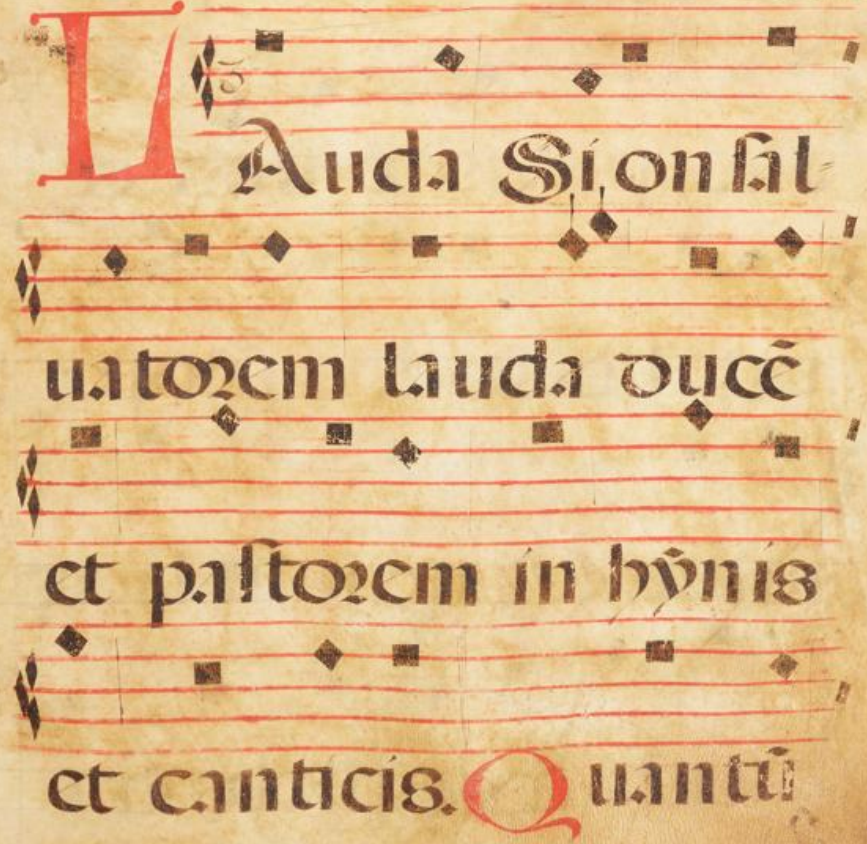 LAuda Sion sal-
uatorem lauda ducē
et paſtorem in hȳnis
et canticis. Quantū